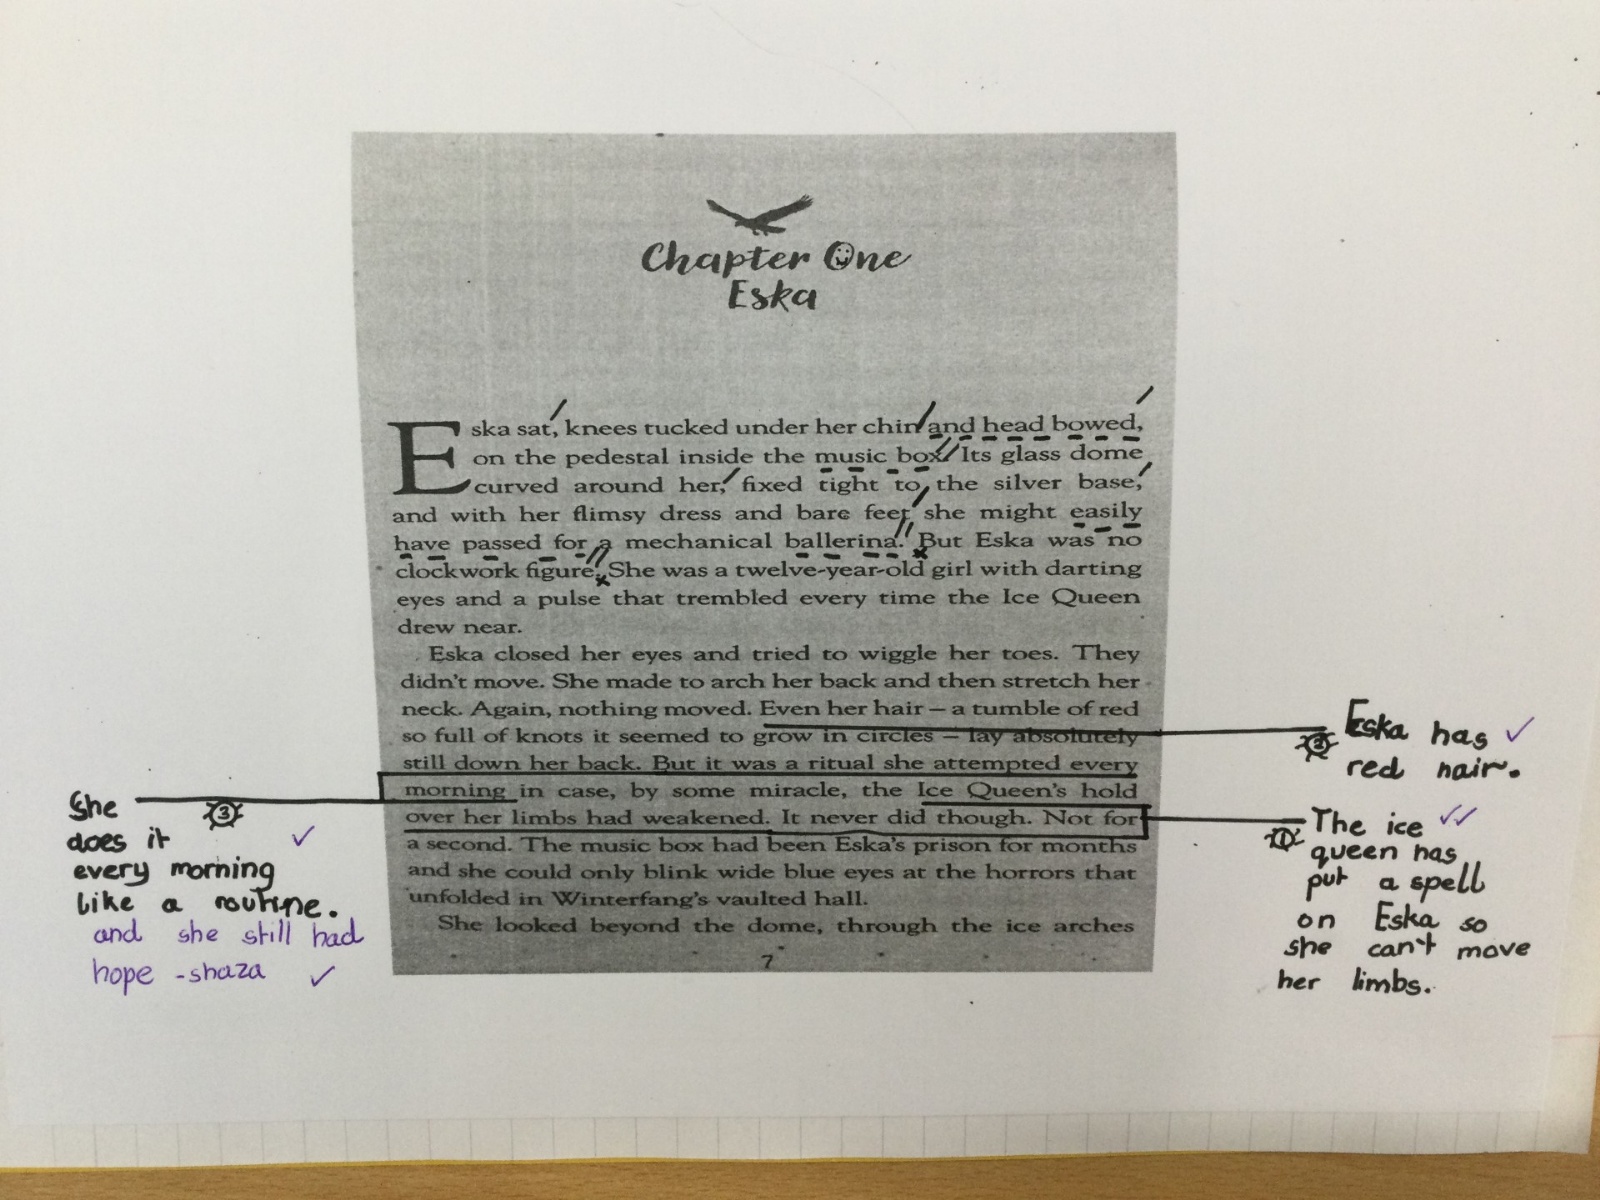 Chapter One
Eska
Eska sat, knees tucked under her chin and head bowed,
on the pedestal inside the music box. Its glass dome
curved around her, fixed tight to the silver base,
and with her flimsy dress and bare feet she might easily
have passed for a mechanical ballerina. But Eska was no
clockwork figure. She was a twelve-year-old girl with darting
eyes and a pulse that trembled every time the Ice Queen
drew near.
Eska closed her eyes and tried to wiggle her toes. They
didn't move. She made to arch her back and then stretch her
neck. Again, nothing moved. Even her hair – a tumble of red
so full of knots it seemed to grow in circles – lay absolutely
still down her back. But it was a ritual she attempted every
morning in case, by some miracle, the Ice Queen's hold
over her limbs had weakened. It never did though. Not for
a second. The music box had been Eska's prison for months
and she could only blink wide blue eyes at the horrors that
unfolded in Winterfang's vaulted hall.
She looked beyond the dome, through the ice arches
7
She
3
does it
every morning
like a routine.
and she still had
hope -shaza
Eska has
2
red hair.
The ice
1
queen has
put a spell
on Eska so
she can't move
her limbs.